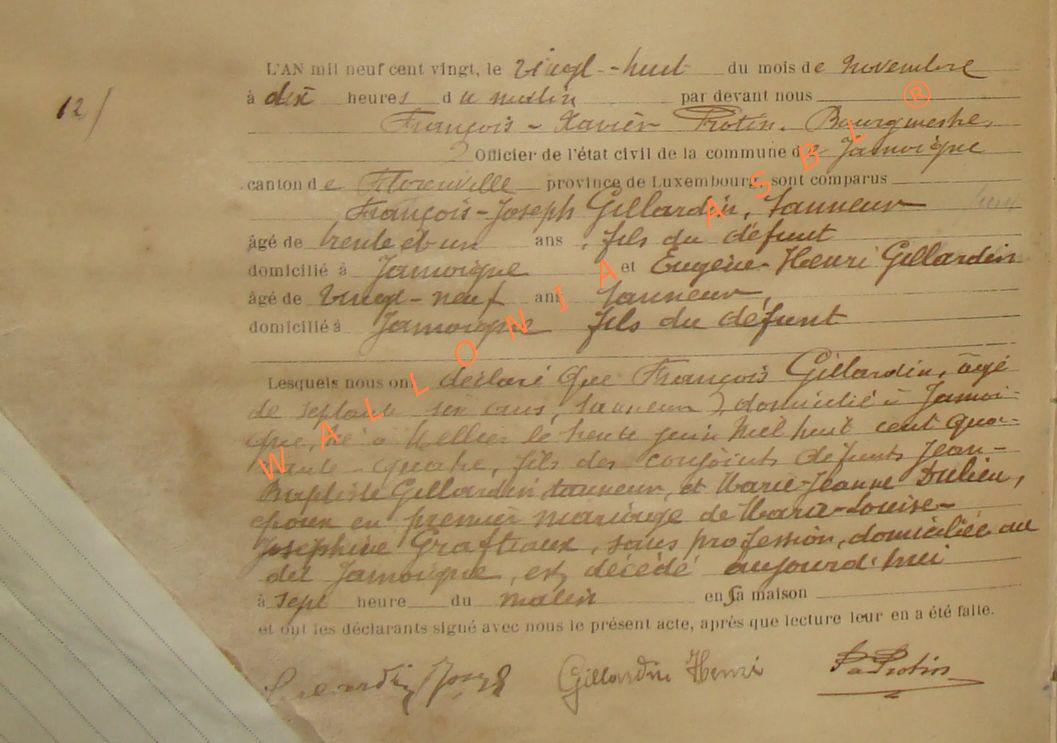 L'AN mil neuf cent vingt, le vingt-huit du mois de novembre
12/
à dix heures du matin par devant nous
François-Xavier Protin, Bourgmestre,
Officier de l'état civil de la commune de Jamoigne
canton de Florenville province de Luxembourg, sont comparus
François-Joseph Gillardin, tanneur
âgé de trente et un ans, fils du défunt
domicilié à Jamoigne et Eugène-Henri Gillardin
âgé de vingt-neuf ans tanneur,
domicilié à Jamoigne fils du défunt
Lesquels nous ont déclaré que François Gillardin, âgé
de septante six ans, tanneur, domicilié à Jamoi-
gne, né à Mellier le trente juin mil huit cent qua-
rante-quatre, fils des conjoints défunts Jean-
Baptiste Gillardin tanneur, et Marie-Jeanne Dulieu,
époux en premier mariage de Marie-Louise-
Joséphine Grafteaux, sans profession, domiciliée au
dit Jamoigne, est décédé aujourd'hui
à sept heure du matin en sa maison
et ont les déclarants signé avec nous le présent acte, après que lecture leur en a été faite.
Gillardin Henri
WALLONIA ASBL ®